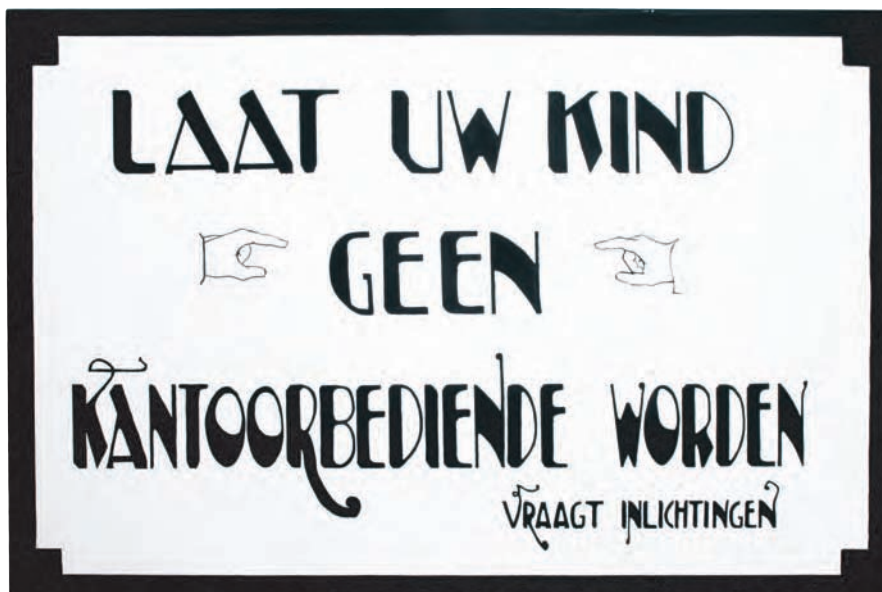 LAAT UW KIND
GEEN
KANTOORBEDIENDE WORDEN
VRAAGT INLICHTINGEN